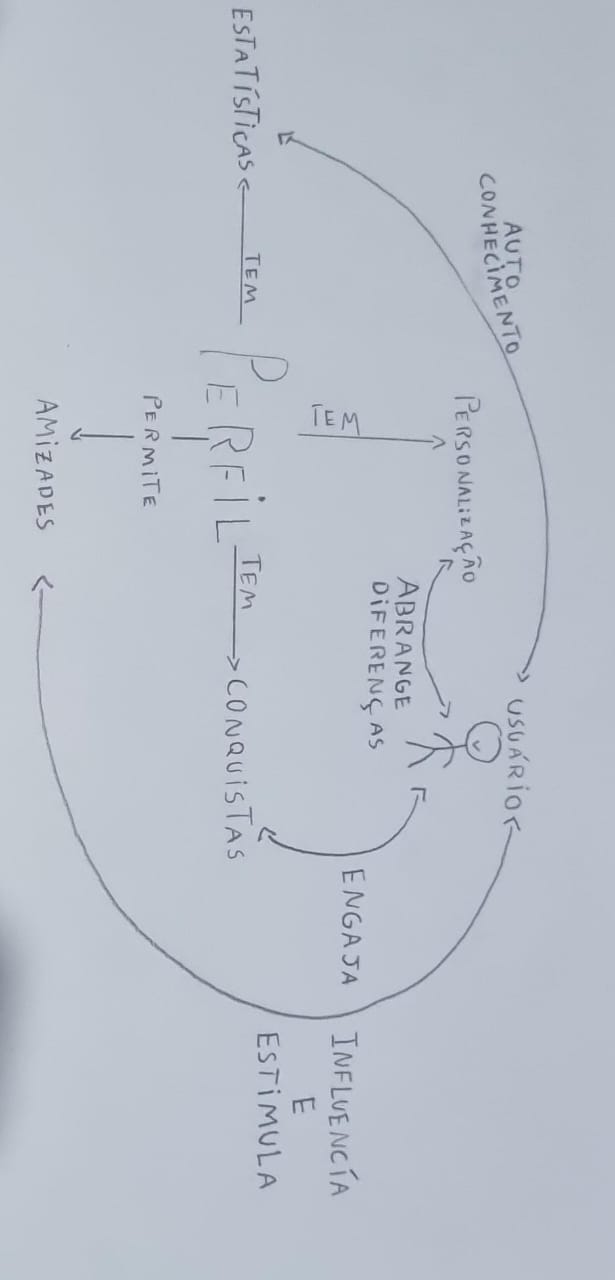 AUTO
CONHECIMENTO
USUÁRIO
PERSONALIZAÇÃO
ABRANGE
DIFERENÇAS
TEM
ENGAJA
INFLUENCÍA
E
ESTIMULA
ESTATÍSTICAS
TEM
PERFIL
TEM
CONQUISTAS
PERMITE
AMIZADES